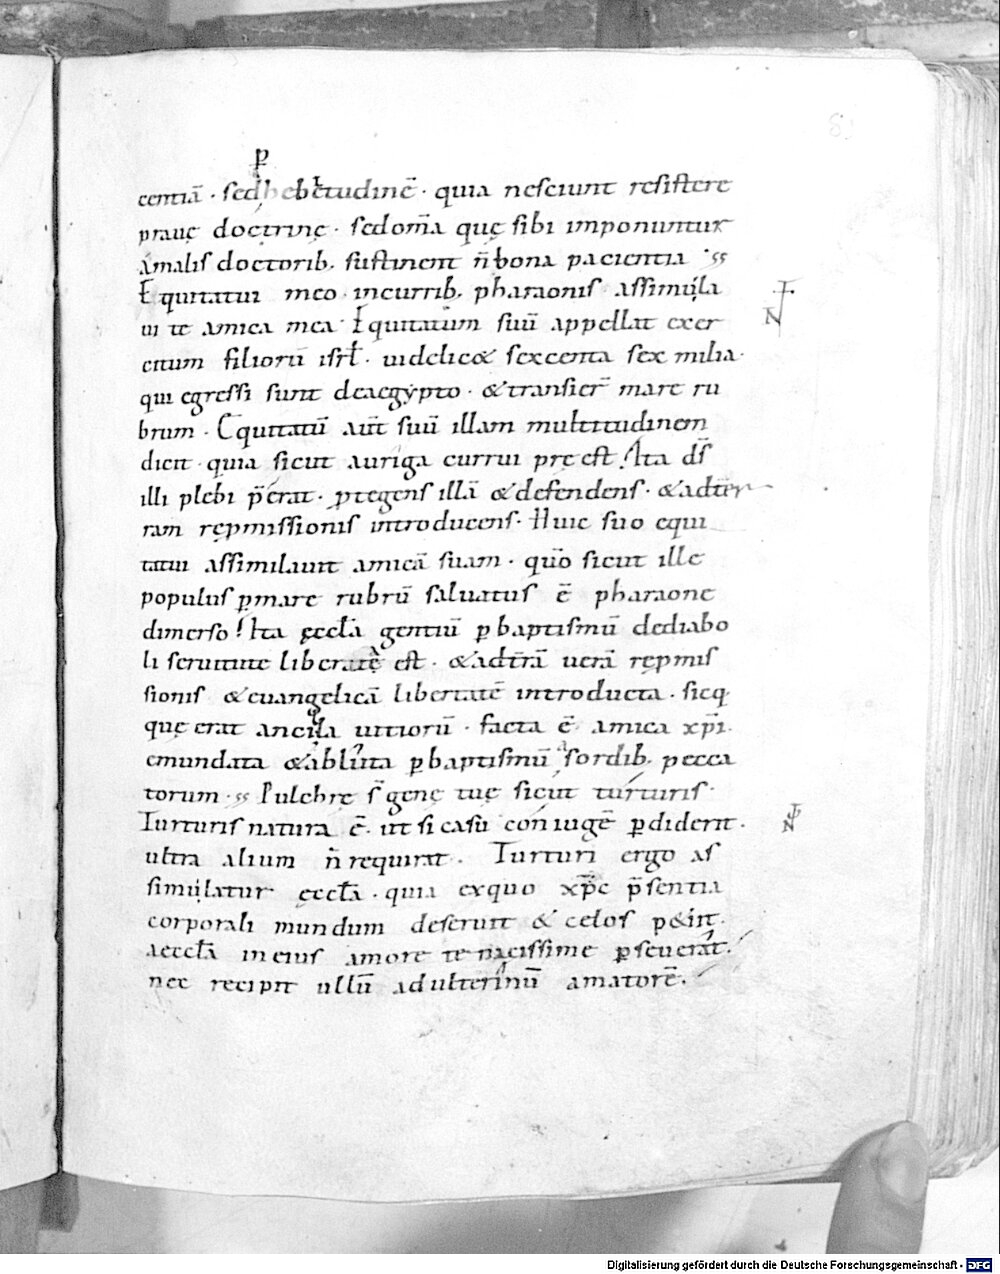 61
ꝑ
centiā · sed hebetudinē · quia nesciunt resistere
prauę doctrinę · sed om̄a quę sibi imponuntur
a malis doctorib; sustinent n̄ bona pacientia ·
Equitatui meo · in currib; pharaonis · assimila
ui te amica mea · Equitatum suū appellat exer
citum filiorū isrł · uidelic& sexcenta sex milia ·
qui egressi sunt de aegypto · & transier̄ mare ru
brum · Equitatū aut̄ suū illam multitudinem
dicit · quia sicut auriga currui pręest · Ita dn̄s
illi plebi p̄erat · ꝓtegens illā & defendens · & ad ter
ram repmissionis introducens · Huic suo equi
tatui assimilauit amicā suam · quo sicut ille
populus ꝑ mare rubrū saluatus ē pharaone
dimerso · Ita ęccła gentiū ꝑ baptismū de diabo
li seruitute liberata est · & ad tr̄ā uerā repmis
sionis & euangelicā libertatē introducta · sicq;
quę erat ancilla uitiorū · facta ē amica xp̄i ·
emundata & abluta ꝑ baptismū a sordib; pecca
torum · Pulchrę s̄ genę tuę sicut turturis ·
Turturis natura ē · ut si casu coniugē ꝑdiderit ·
ultra alium n̄ requirat · Turturi ergo as
similatur ęccła · quia ex quo xp̄c p̄sentia
corporali mundum deseruit & celos pe&iit ·
aeccła in eius amore tenacissime ꝑseuerat ·
nec recipit ullū adulterinū amatorē ·
Digitalisierung gefördert durch die Deutsche Forschungsgemeinschaft - DFG